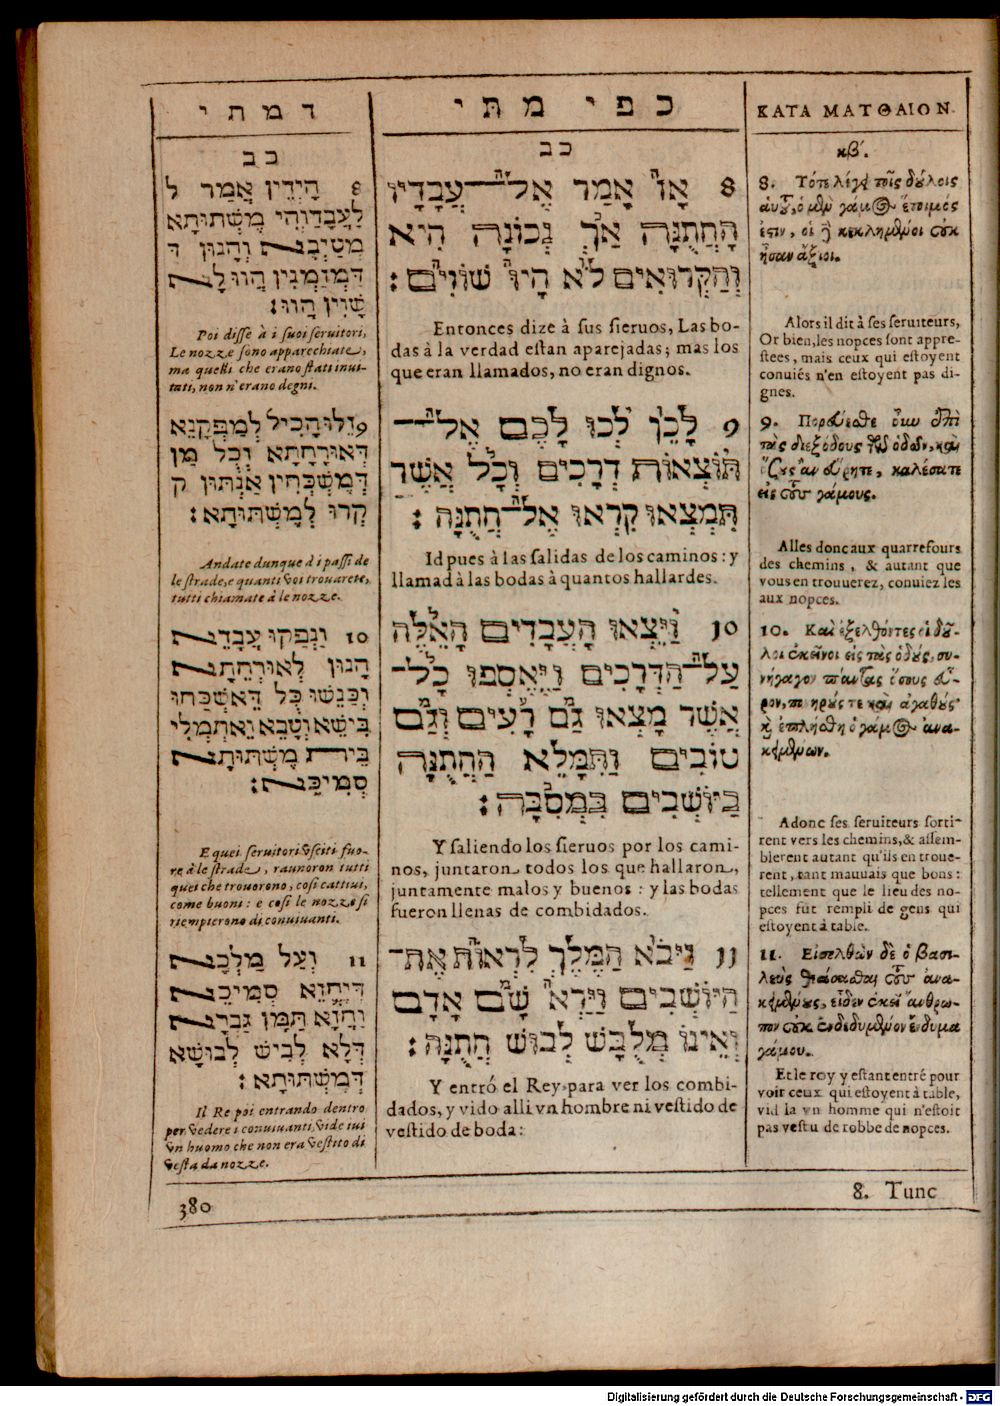 דמתי
כב
8 הָידֵין אֲמַר ל
לַעֲבָדַוְהִי מֶשְׁתּוּתָא
מטַיְבָא וְהָנוּן דּ
דַּמְזַמְנִין הֲווּ לָא
שָׁוִין הֲווּ׃
Poi disse à i suoi seruitori,
Le nozze sono apparechiate,
ma quelli che erano stati inui-
tati, non n'erano degni.
9 זֵלוּ הָכִיל לְמַפְּקָנֵא
דְּאוּרָחָתָא וְכָל מַן
דְּמֶשְׁכְּחִין אַנְתּוּן ק
קְרוּ לְמֶשְׁתּוּתָא׃
Andate dunque à i passi de
le strade, e quanti voi trouarete,
tutti chiamate à le nozze.
10 וַנְפַקוּ עֲבָדֵא
הָנוּן לְאוּרְחָתָא
וְכַנֶשׁוּ כָּל דֶּאְשְׁכַּחוּ
בִּישֵׁא וְטָבֵא וֵאתְמְלִי
בֵּית מֶשְׁתּוּתָא
סְמִיכֵא׃
E quei seruitori vsciti fuo-
re à le strade, raunoron tutti
quei che trouorono, cosi cattiui,
come buoni: e cosi le nozze si
riempierono di conuiuanti.
11 וְעַל מַלְכָּא
דְּיֶחֱזֵא סְמִיכֵא
וַחֲזָא תַּמָּן גַּבְרָא
דְּלָא לְבִישׁ לְבוּשָׁא
דְּמִשְׁתּוּתָא׃
Il Re poi entrando dentro
per vedere i conuiuanti, vide iui
vn huomo che non era vestito di
vesta da nozze.
380
כפי מתי
כב
8 אָז אָמַר אֶל־עֲבָדָיו
הַחֲתֻנָּה אַךְ נְכוֹנָה הִיא
וְהַקְּרוּאִים לֹא הָיוּ שׁוֹוִים׃
Entonces dize à sus sieruos, Las bo-
das à la verdad estan aparejadas; mas los
que eran llamados, no eran dignos.
9 לָכֵן לְכוּ לָכֶם אֶל־
תּוֹצְאוֹת דְרָכִים וְכָל אֲשֶׁר
תִּמְצְאוּ קִרְאוּ אֶל־חֲתֻנָּה׃
Id pues à las salidas de los caminos: y
llamad à las bodas à quantos hallardes.
10 וַיֵּצְאוּ הָעֲבָדִים הָאֵלֶּה
עַל־הַדְּרָכִים וַיֶּאֱסְפוּ כָל־
אֲשֶׁר מָצְאוּ גַם רָעִים וְגַם
טוֹבִים וַתִּמָּלֵא הַחֲתֻנָּה
בַּיּוֹשְׁבִים בִּמְסִבָּה׃
Y saliendo los sieruos por los cami-
nos, juntaron todos los que hallaron,
juntamente malos y buenos: y las bodas
fueron llenas de combidados.
11 וַיָּבֹא הַמֶּלֶךְ לִרְאוֹת אֶת־
הַיּוֹשְׁבִים וַיַּרְא שָׁם אָדָם
וְאֵינוֹ מְלֻבָּשׁ לְבוּשׁ חֲתֻנָּה׃
Y entró el Rey para ver los combi-
dados, y vido alli vn hombre ni vestido de
vestido de boda:
ΚΑΤΑ ΜΑΤΘΑΙΟΝ.
κβ´.
8. Τότε λέγει τοῖς δούλοις
αὑτοῦ, ὁ μὲν γάμος ἕτοιμός
ἐστιν, οἱ δὲ κεκλημένοι οὐκ
ἦσαν ἄξιοι.
Alors il dit à ses seruiteurs,
Or bien, les nopces sont appre-
stees, mais ceux qui estoyent
conuiés n'en estoyent pas di-
gnes.
9. Πορεύεσθε οὖν ἐπὶ
τὰς διεξόδους τῶν ὁδῶν, καὶ
ὅσους ἂν εὕρητε, καλέσατε
εἰς τοὺς γάμους.
Alles donc aux quarrefours
des chemins, & autant que
vous en trouuerez, conuiez les
aux nopces.
10. Καὶ ἐξελθόντες οἱ δοῦ-
λοι ἐκεῖνοι εἰς τὰς ὁδοὺς, συ-
νήγαγον πάντας ὅσους εὗ-
ρον, πονηρούς τε καὶ ἀγαθούς·
καὶ ἐπλήσθη ὁ γάμος ἀνα-
κειμένων.
Adonc ses seruiteurs sorti-
rent vers les chemins, & assem-
blerent autant qu'ils en trouue-
rent, tant mauuais que bons:
tellement que le lieu des no-
pces fut rempli de gens qui
estoyent à table.
11. Εἰσελθὼν δὲ ὁ βασι-
λεὺς θεάσασθαι τοὺς ἀνα-
κειμένους, εἶδεν ἐκεῖ ἄνθρω-
πον οὐκ ἐνδεδυμένον ἔνδυμα
γάμου.
Et le roy y estant entré pour
voir ceux qui estoyent à table,
vid la vn homme qui n'estoit
pas vestu de robbe de nopces.
8. Tunc
Digitalisierung gefördert durch die Deutsche Forschungsgemeinschaft - DFG